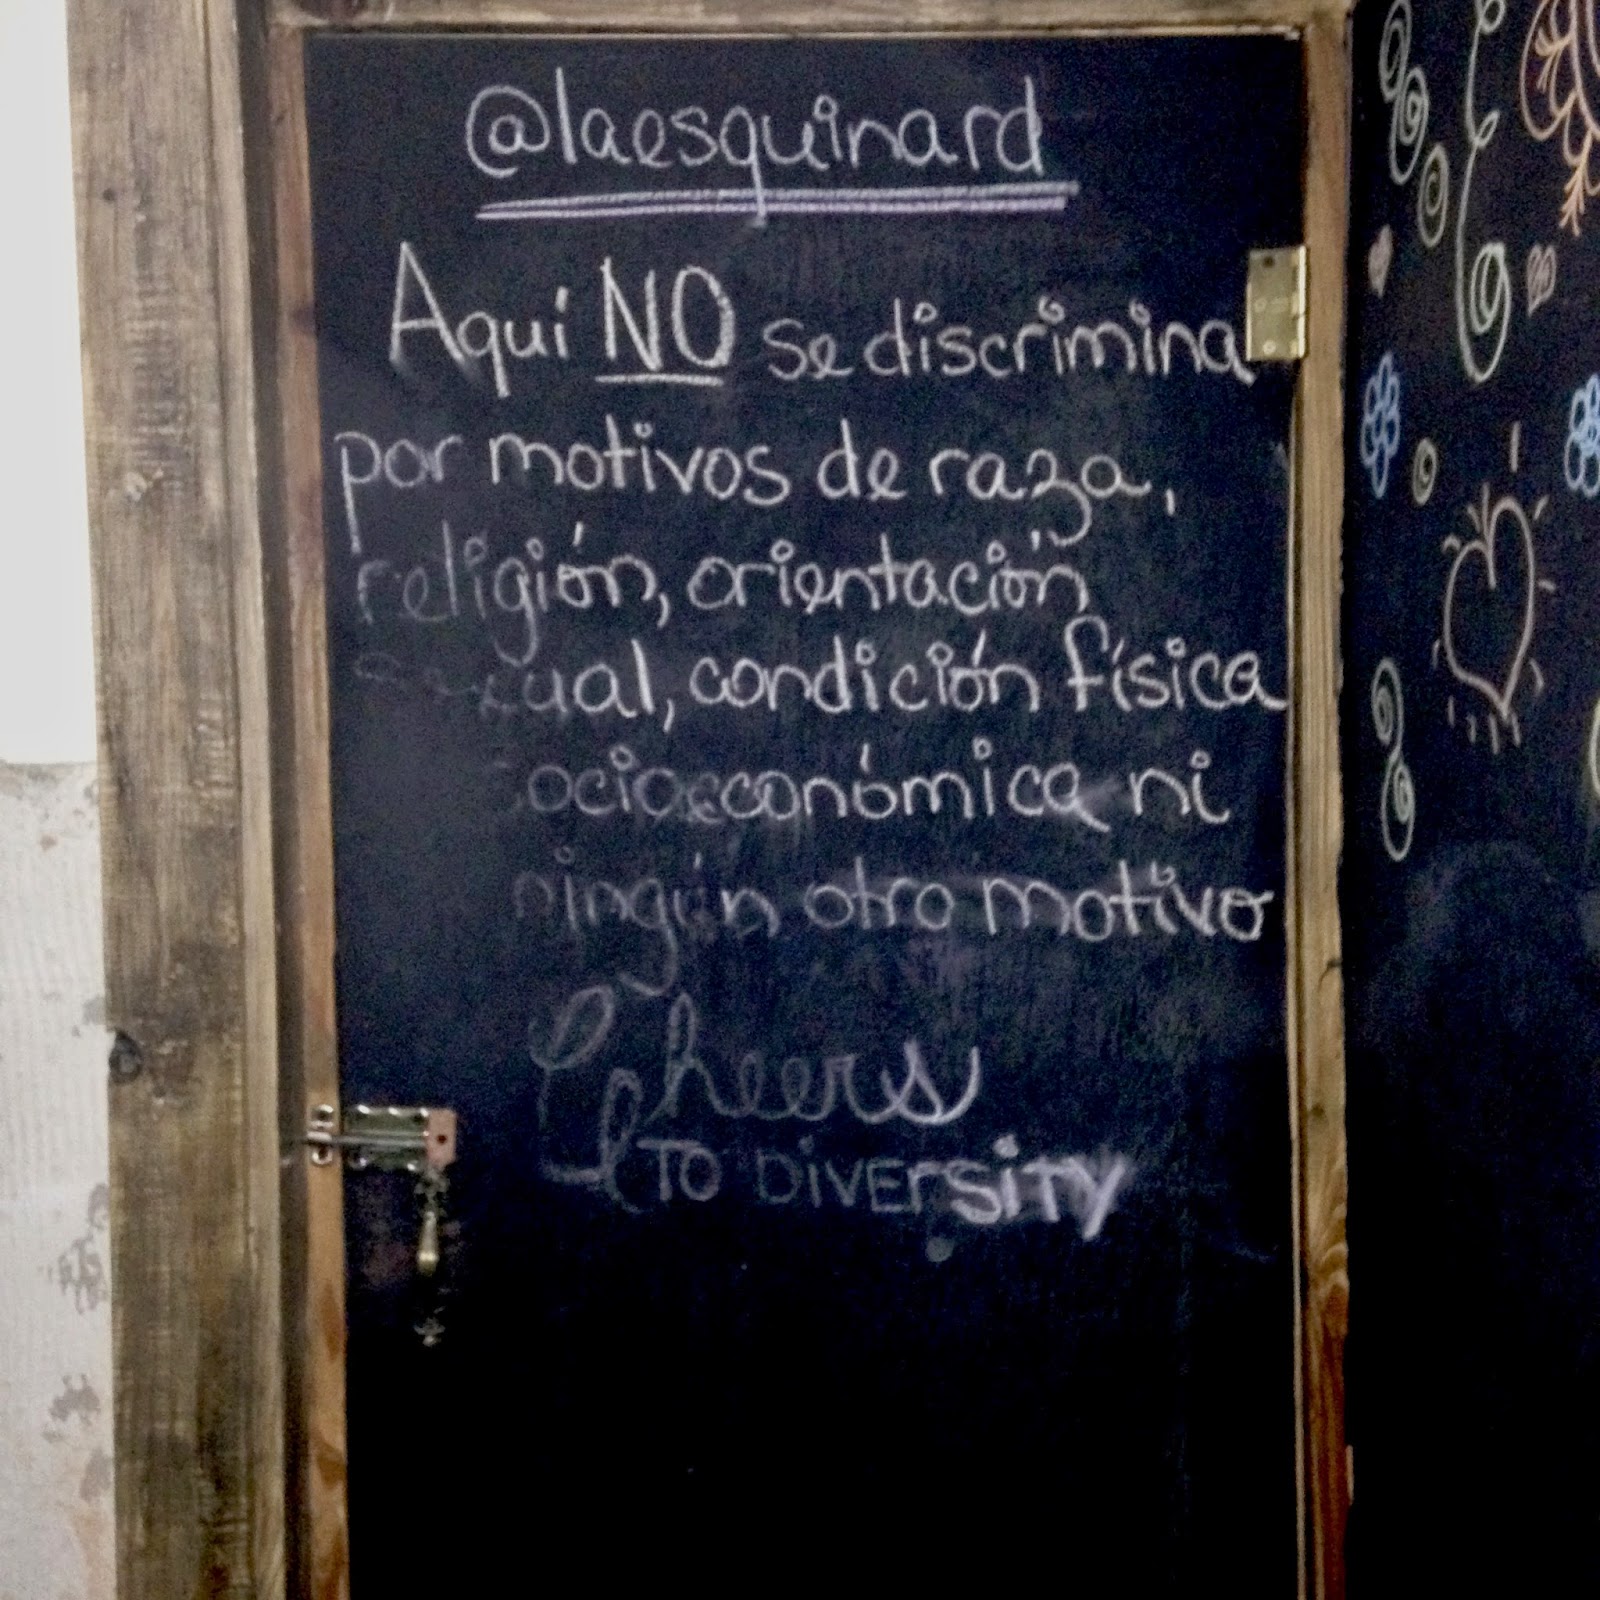 @laesquinard
Aquí NO se discrimina
por motivos de raza,
religión, orientación
sexual, condición física
socioeconómica ni
ningún otro motivo
Cheers
TO DiVERSiTY